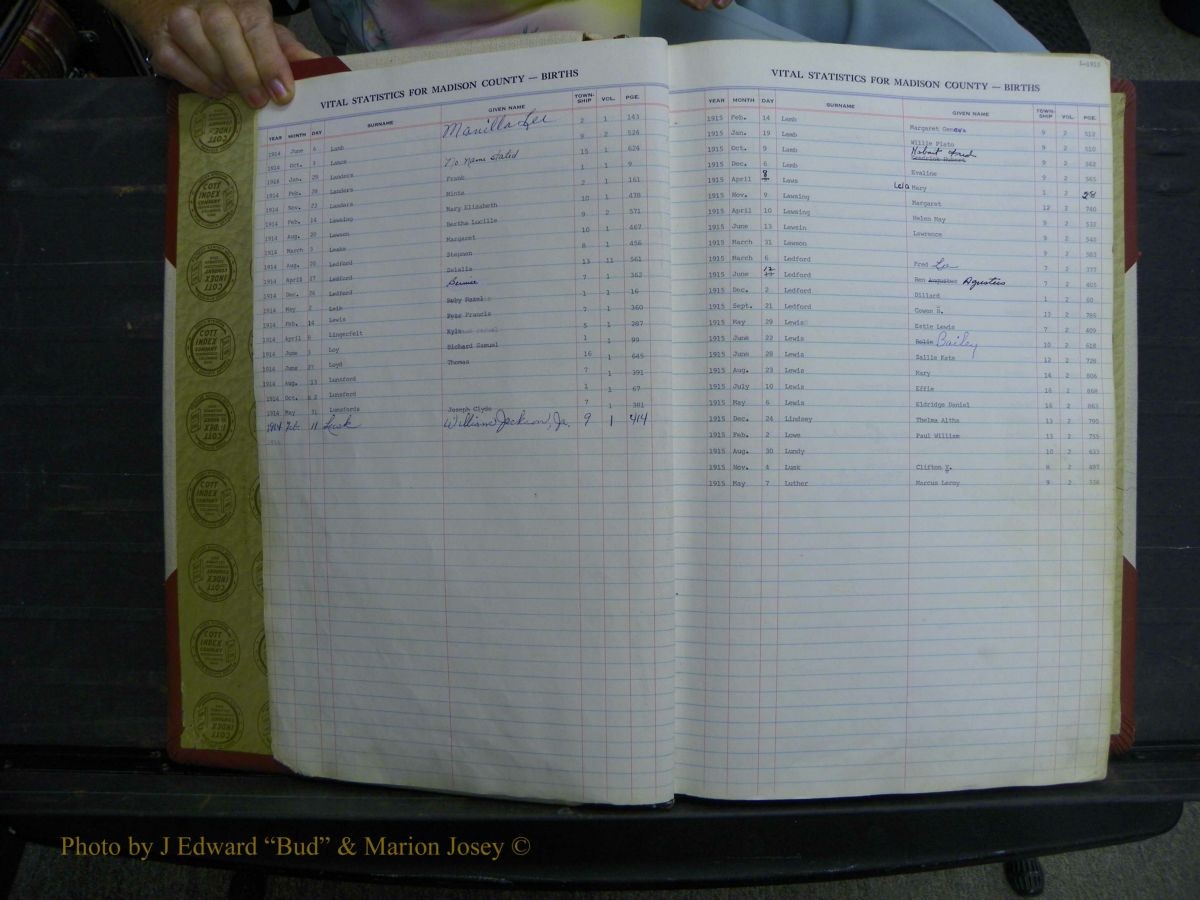 VITAL STATISTICS FOR MADISON COUNTY — BIRTHS
YEAR MONTH DAY SURNAME GIVEN NAME TOWN-SHIP VOL. PGE.
1914 June 6 Lamb Manilla Lee 2 1 143
1914 Oct. Lance No name stated 9 2 526
Jan. 25 Landers Frank 15 1 624
1914 Feb. Landers Minta 1 1 9
1914 Nov. 23 Landers Mary Elizabeth 2 1 161
1914 Feb. 14 Lawning Bertha Lucille 10 1 478
1914 Aug. 20 Lawson Margaret 9 2 571
1914 March 3 Leake Stephen 10 1 467
1914 Aug. 20 Ledford Delalia 8 1 456
1914 April 17 Ledford Bernice 13 11 561
1914 Dec. Ledford 7 1 362
1914 May 2 Baby Hazel 1 1 16
1914 Feb. 14 Lewis Francis 7 1 360
1914 April 8 Lingerfelt 5 1 287
1914 June 3 Loy Richard Samuel 1 1 99
1914 June 27 Loyd Thomas 16 1 645
1914 Aug. 13 Lunsford 7 1 391
1914 Oct. Lunsford 1 1 67
1914 May 31 Lunsfords Joseph Clyde 7 1 381
1914 Feb. 11 Lusk William Jackson, Jr. 9 1 414
VITAL STATISTICS FOR MADISON COUNTY — BIRTHS
L-1915
YEAR MONTH DAY SURNAME GIVEN NAME TOWN-SHIP VOL. PGE.
1915 Feb. 14 Lamb Margaret Geneva 9 2 512
1915 Jan. 19 Lamb Willie Plato 9 2 510
1915 Oct. 9 Lamb Hobart 9 2 562
1915 Dec. 6 Lamb Evaline 9 2 565
1915 April 8 Laws Lela Mary 1 2 28
1915 Nov. 9 Lawning Margaret 12 2 740
1915 April 10 Lawning Helen May 9 2 532
1915 June 13 Lawsin Lawrence 9 2 540
1915 March 31 Lawson 9 2 503
1915 March 6 Ledford Fred Lee 7 2 377
1915 June 12 Ledford Ben Augustus Agustus 7 2 405
1915 Dec. 2 Ledford Dillard 1 2 60
1915 Sept. 21 Ledford Cowen H. 13 2 786
1915 May 29 Lewis Estie Lewis 7 2 409
1915 June 22 Lewis Bailey 10 2 618
1915 June 28 Lewis Sallie Kate 12 2 728
1915 Aug. 23 Lewis Mary 14 2 806
1915 July 10 Lewis Effie 16 2 868
1915 May 6 Lewis Eldridge Daniel 16 2 863
1915 Dec. 24 Lindsey Thelma Altha 13 2
1915 Feb. 2 Lowe Paul William 13 2 755
1915 Aug. 30 Lundy 10 2 633
1915 Nov. 4 Lusk Clifton Y. 8 2 497
1915 May 7 Luther Marcus Leroy 9 2
COTT INDEX COMPANY
Photo by J Edward “Bud” & Marion Josey ©